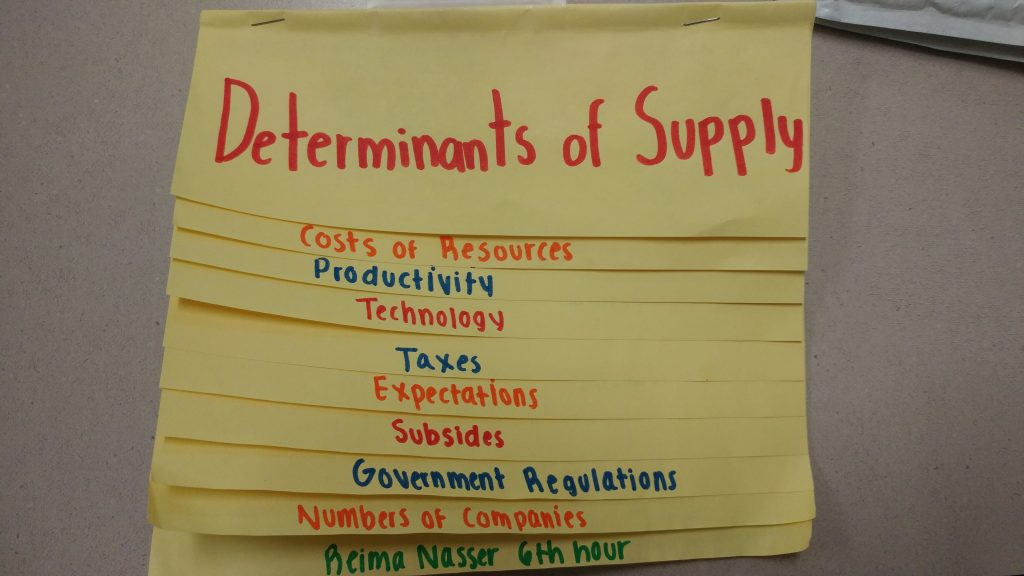 Determinants of Supply
Costs of Resources
Productivity
Technology
Taxes
Expectations
Subsides
Government Regulations
Numbers of Companies
Reima Nasser 6th hour